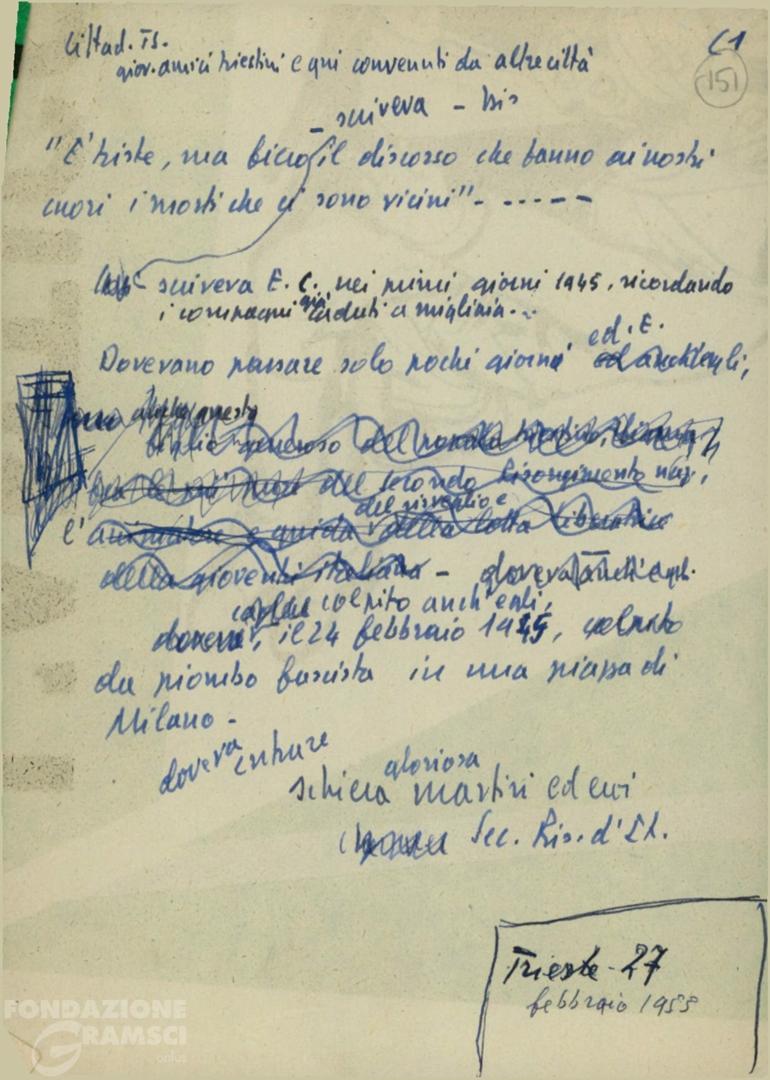 Cittad. Ts.
giov. amici triestini e qui convenuti da altre città
C1
151
scriveva - bis
"E' triste, ma il discorso che fanno ai nostri
cuori i morti che ci sono vicini" - - - - - -
scriveva E. C. nei primi giorni 1945, ricordando
i compagni già caduti a migliaia...
ed. E.
Dovevano passare solo pochi giorni ed anch'egli,
anche questo
figlio generoso del popolo triestino,
del secondo Risorgimento naz,
del risveglio e
l'animatore e guida della lotta liberatrice
della gioventù italiana - doveva anch'egli
colpito anch'egli,
doveva, il 24 febbraio 1945, colpito
da piombo fascista in una piazza di
Milano -
doveva entrare
gloriosa
schiera martiri ed eroi
Sec. Ris. d'It.
Trieste - 27
febbraio 1955
FONDAZIONE
GRAMSCI
onlus